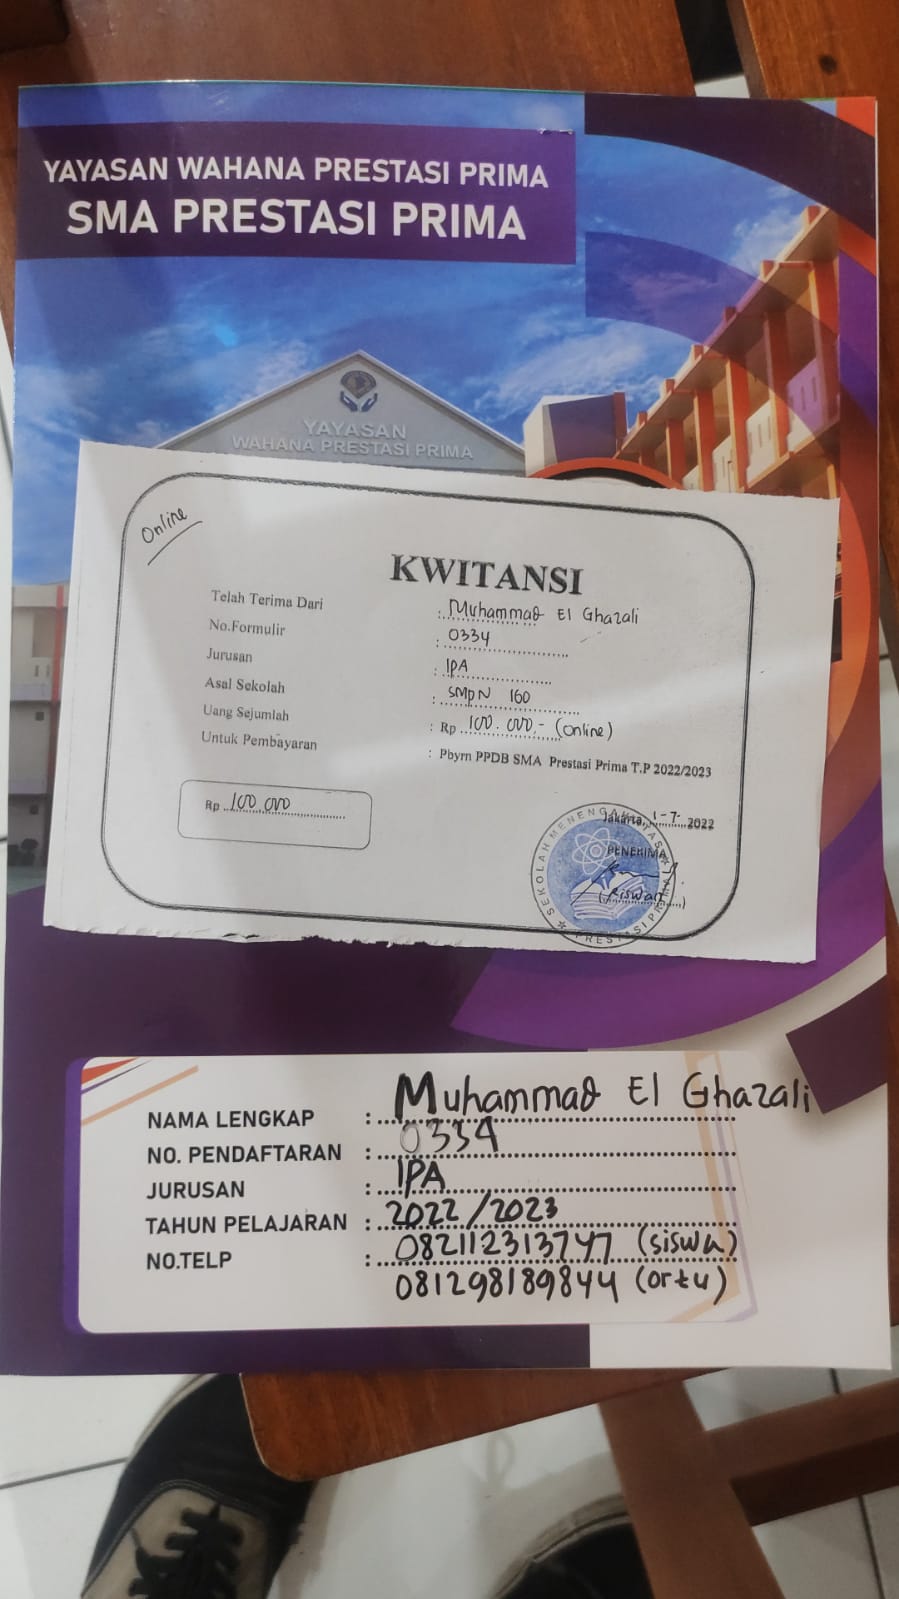 YAYASAN WAHANA PRESTASI PRIMA
SMA PRESTASI PRIMA
YAYASAN
WAHANA PRESTASI PRIMA
Online
KWITANSI
Telah Terima Dari : Muhammad El Ghazali
No.Formulir : 0334
Jurusan : IPA
Asal Sekolah : SMPN 160
Uang Sejumlah : Rp 100.000,- (online)
Untuk Pembayaran : Pbyrn PPDB SMA Prestasi Prima T.P 2022/2023
Rp 100.000
Jakarta, 1-7-2022
PENERIMA
(Riswan)
SEKOLAH MENENGAH ATAS
PRESTASI PRIMA
NAMA LENGKAP : Muhammad El Ghazali
NO. PENDAFTARAN : 0334
JURUSAN : IPA
TAHUN PELAJARAN : 2022/2023
NO.TELP : 082112313747 (siswa)
081298189844 (ortu)